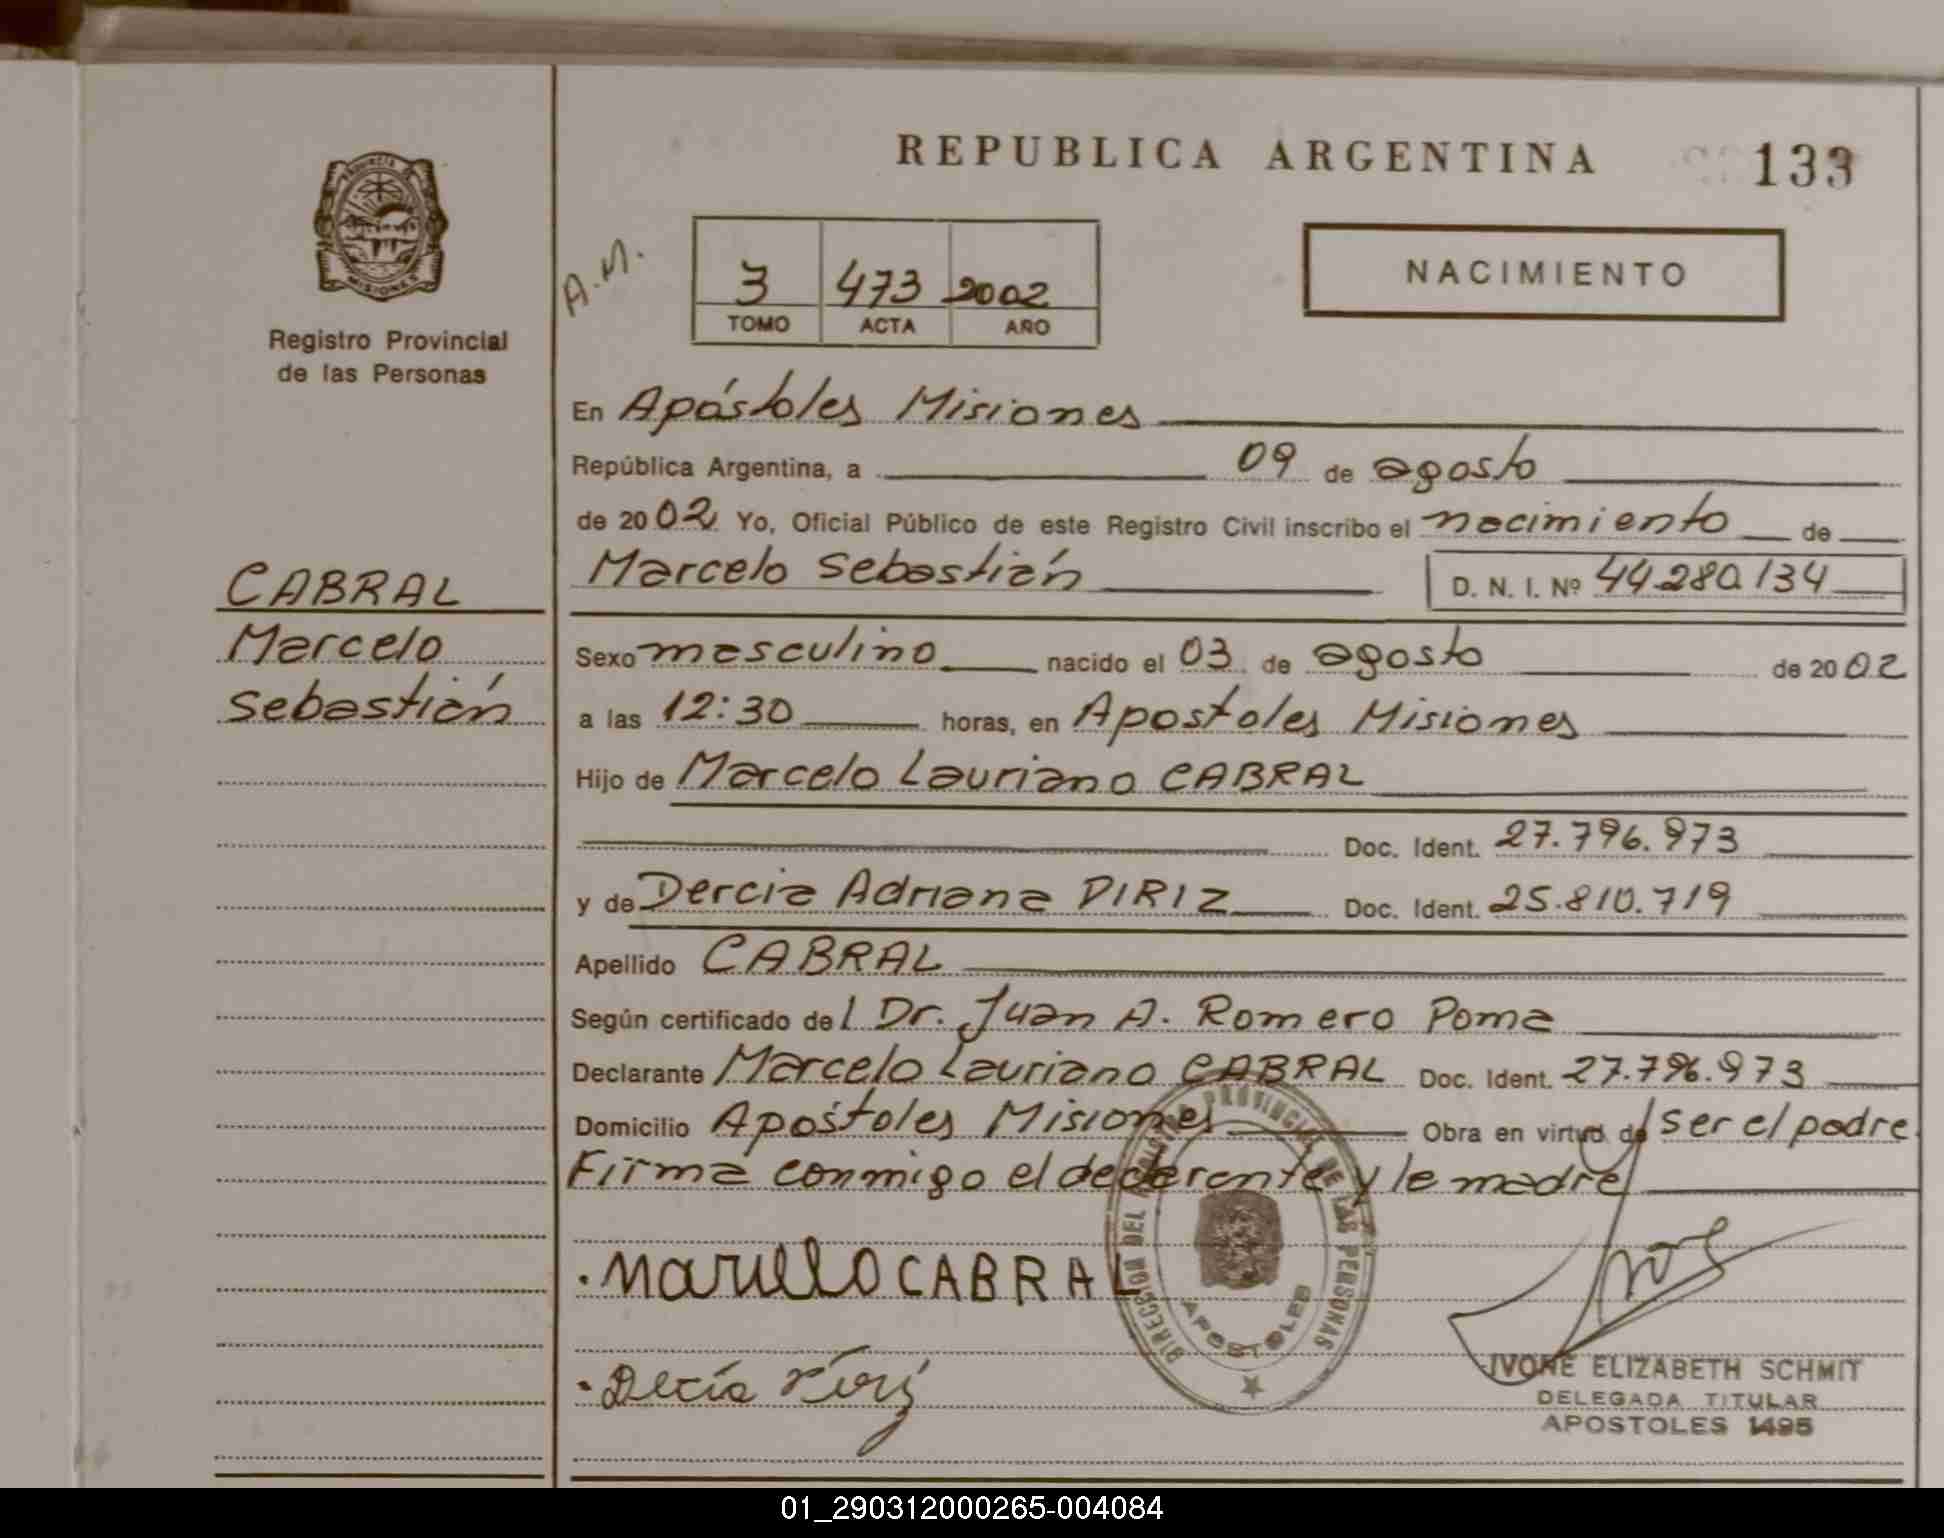 REPUBLICA ARGENTINA
133
PROVINCIA DE
MISIONES
Registro Provincial
de las Personas
A.M.
3 473 2002
TOMO ACTA AÑO
NACIMIENTO
En Apóstoles Misiones
República Argentina, a 09 de agosto
de 2002 Yo, Oficial Público de este Registro Civil inscribo el nacimiento de
Marcelo Sebastián D. N. I. Nº 44.280.134
CABRAL
Marcelo
Sebastián
Sexo masculino nacido el 03 de agosto de 2002
a las 12:30 horas, en Apostoles Misiones
Hijo de Marcelo Lauriano CABRAL
Doc. Ident. 27.796.973
y de Dercia Adriana DIRIZ Doc. Ident. 25.810.719
Apellido CABRAL
Según certificado del Dr. Juan A. Romero Poma
Declarante Marcelo Lauriano CABRAL Doc. Ident. 27.796.973
Domicilio Apóstoles Misiones Obra en virtud de ser el padre.
Firma conmigo el declarante y la madre
DIRECCION DEL REGISTRO PROVINCIAL DE LAS PERSONAS
APOSTOLES
Marcelo CABRAL
IVONE ELIZABETH SCHMIT
DELEGADA TITULAR
APOSTOLES 1495
01_290312000265-004084